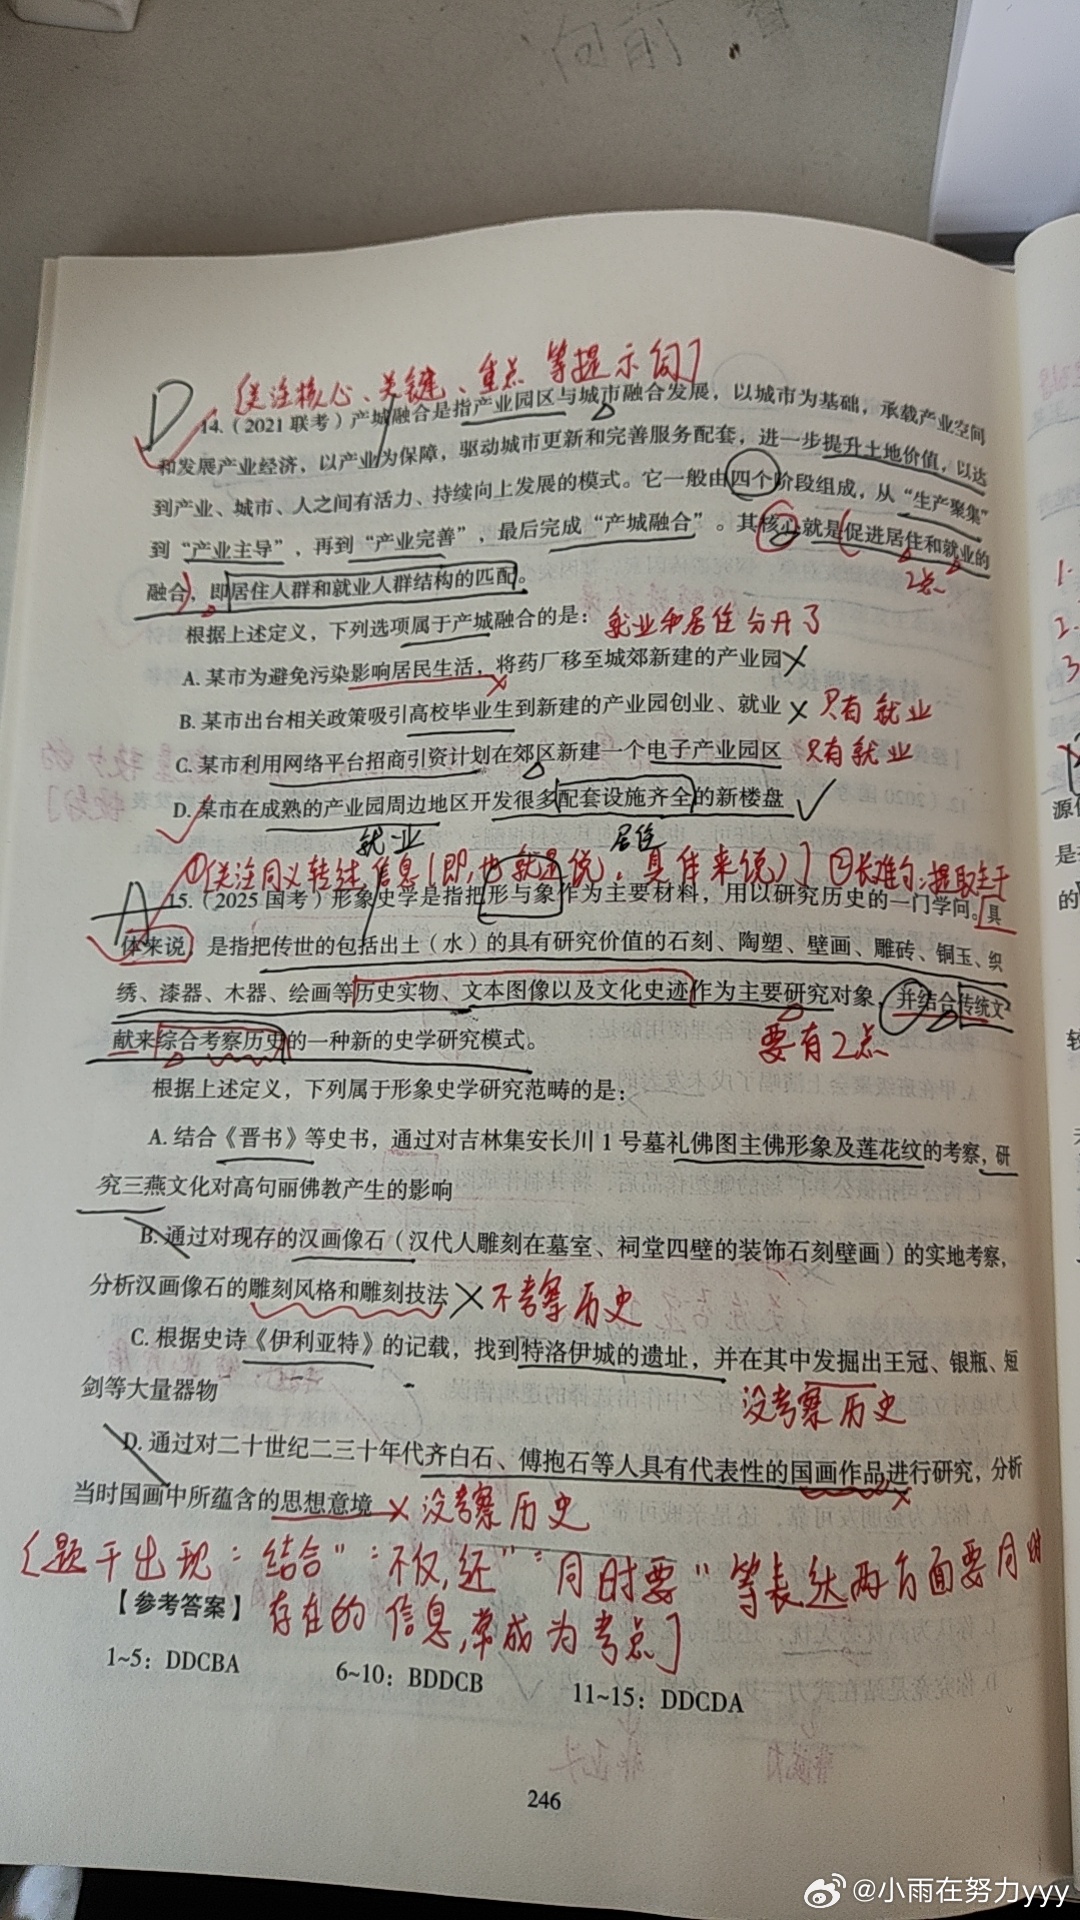 向前
[关注核心、关键、重点 等提示句]
D
14.（2021 联考）产城融合是指产业园区与城市融合发展，以城市为基础，承载产业空间
和发展产业经济，以产业为保障，驱动城市更新和完善服务配套，进一步提升土地价值，以达
到产业、城市、人之间有活力、持续向上发展的模式。它一般由四个阶段组成，从“生产聚集”
到“产业主导”，再到“产业完善”，最后完成“产城融合”。其核心就是促进居住和就业的
2点
融合，即居住人群和就业人群结构的匹配。
根据上述定义，下列选项属于产城融合的是：
就业和居住分开了
A. 某市为避免污染影响居民生活，将药厂移至城郊新建的产业园
B. 某市出台相关政策吸引高校毕业生到新建的产业园创业、就业
只有就业
C. 某市利用网络平台招商引资计划在郊区新建一个电子产业园区
只有就业
D. 某市在成熟的产业园周边地区开发很多配套设施齐全的新楼盘
就业
居住
①[关注同义转述信息(即,也就是说,具体来说)] ②长难句:提取主干
A
15.（2025 国考）形象史学是指把形与象作为主要材料，用以研究历史的一门学问。具
体来说，是指把传世的包括出土（水）的具有研究价值的石刻、陶塑、壁画、雕砖、铜玉、织
绣、漆器、木器、绘画等历史实物、文本图像以及文化史迹作为主要研究对象，并结合传统文
献来综合考察历史的一种新的史学研究模式。
要有2点
根据上述定义，下列属于形象史学研究范畴的是：
A. 结合《晋书》等史书，通过对吉林集安长川 1 号墓礼佛图主佛形象及莲花纹的考察，研
究三燕文化对高句丽佛教产生的影响
B. 通过对现存的汉画像石（汉代人雕刻在墓室、祠堂四壁的装饰石刻壁画）的实地考察，
分析汉画像石的雕刻风格和雕刻技法
不考察历史
C. 根据史诗《伊利亚特》的记载，找到特洛伊城的遗址，并在其中发掘出王冠、银瓶、短
剑等大量器物
没考察历史
D. 通过对二十世纪二三十年代齐白石、傅抱石等人具有代表性的国画作品进行研究，分析
当时国画中所蕴含的思想意境
没考察历史
[题干出现“结合”“不仅,还”“同时要”等表达两方面要同时
存在的信息,常成为考点]
【参考答案】
1~5：DDCBA
6~10：BDDCB
11~15：DDCDA
246
@小雨在努力yyy